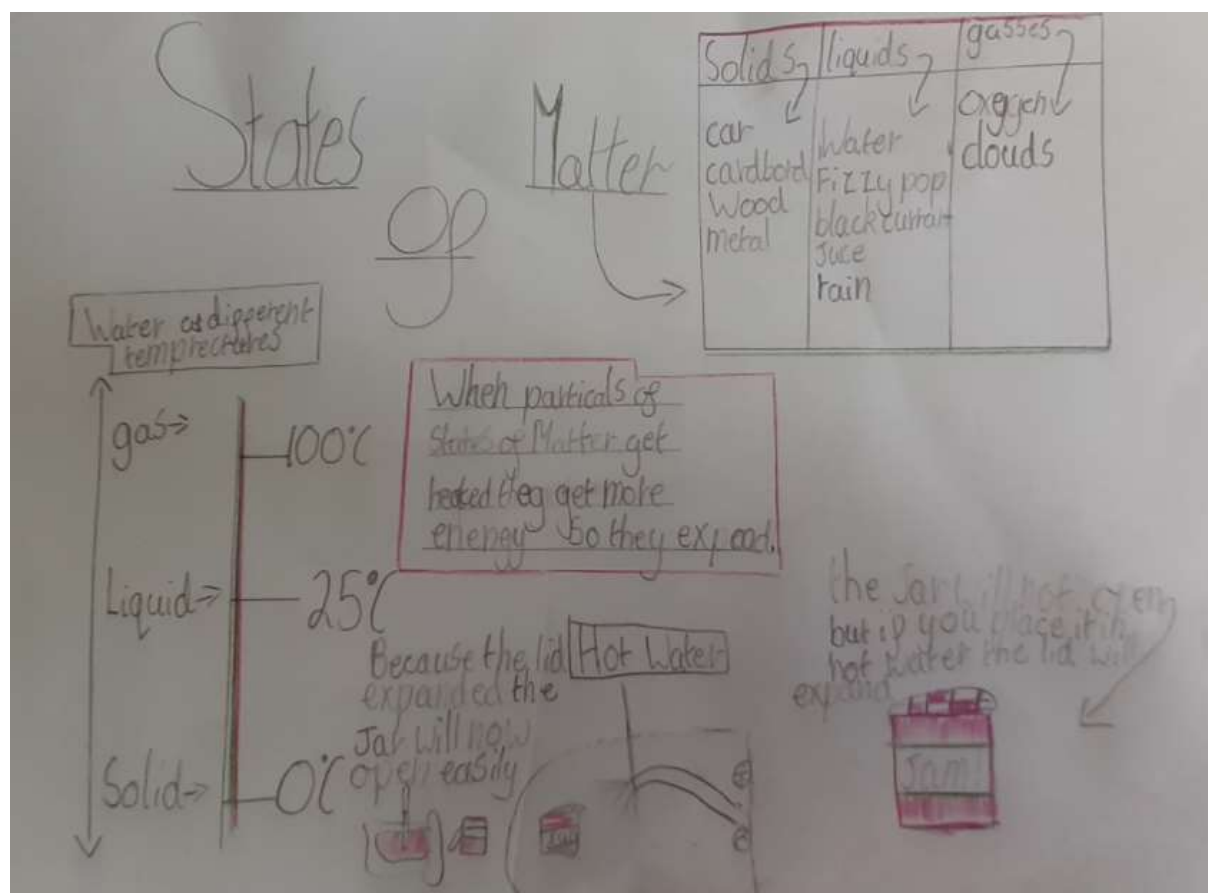 States
of
Matter
Solids
liquids
gasses
car
cardbord
Wood
metal
Water
Fizzy pop
blackcurrant
Juce
rain
oxeggen
clouds
Water at different
temprectures
gas→
100°C
Liquid→
25°C
Solid→
0°C
When particals of
States of Matter get
heated they get more
energy So they expand.
Because the lid
expanded the
Jar will now
open easily
Hot Water
the Jar will not open
but if you place it in
hot water the lid will
expand
Jam!